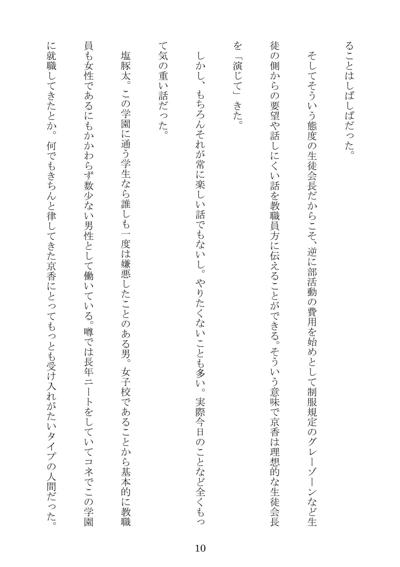 ることはしばしばだった。
そしてそういう態度の生徒会長だからこそ、逆に部活動の費用を始めとして制服規定のグレーゾーンなど生
徒の側からの要望や話しにくい話を教職員方に伝えることができる。そういう意味で京香は理想的な生徒会長
を「演じて」きた。
しかし、もちろんそれが常に楽しい話でもないし。やりたくないことも多い。実際今日のことなど全くもっ
て気の重い話だった。
塩豚太。この学園に通う学生なら誰しも一度は嫌悪したことのある男。女子校であることから基本的に教職
員も女性であるにもかかわらず数少ない男性として働いている。噂では長年ニートをしていてコネでこの学園
に就職してきたとか。何でもきちんと律してきた京香にとってもっとも受け入れがたいタイプの人間だった。
10